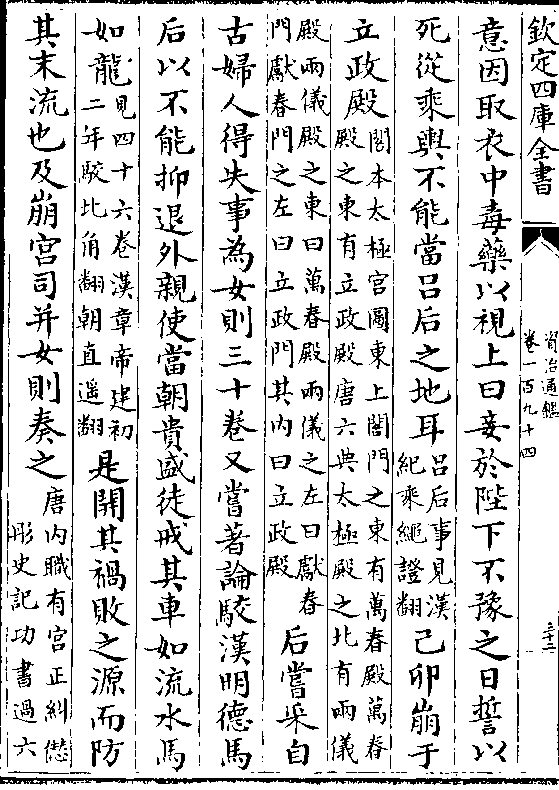 欽定四庫全書
資治通鑑
卷一百九十四
三十二
意因取衣中毒藥以視上曰妾於陛下不豫之日誓以
死從乘輿不能當吕后之地耳吕后事見漢
紀乘繩證翻己卯崩于
立政殿閣本太極宮圖東上閤門之東有萬春殿萬春
殿之東有立政殿唐六典太極殿之北有兩儀
殿兩儀殿之東曰萬春殿兩儀之左曰獻春
門獻春門之左曰立政門其内曰立政殿后嘗采自
古婦人得失事為女則三十卷又嘗著論駮漢明德馬
后以不能抑退外親使當朝貴盛徒戒其車如流水馬
如龍見四十六卷漢章帝建初
二年駮比角翻朝直遥翻是開其禍敗之源而防
其末流也及崩宮司并女則奏之唐内職有宮正糾愆
彤史記功書過六